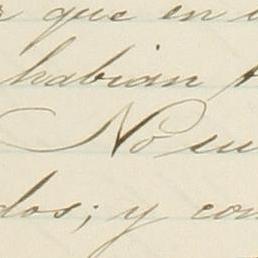 que en
habian
No su
dos; y con